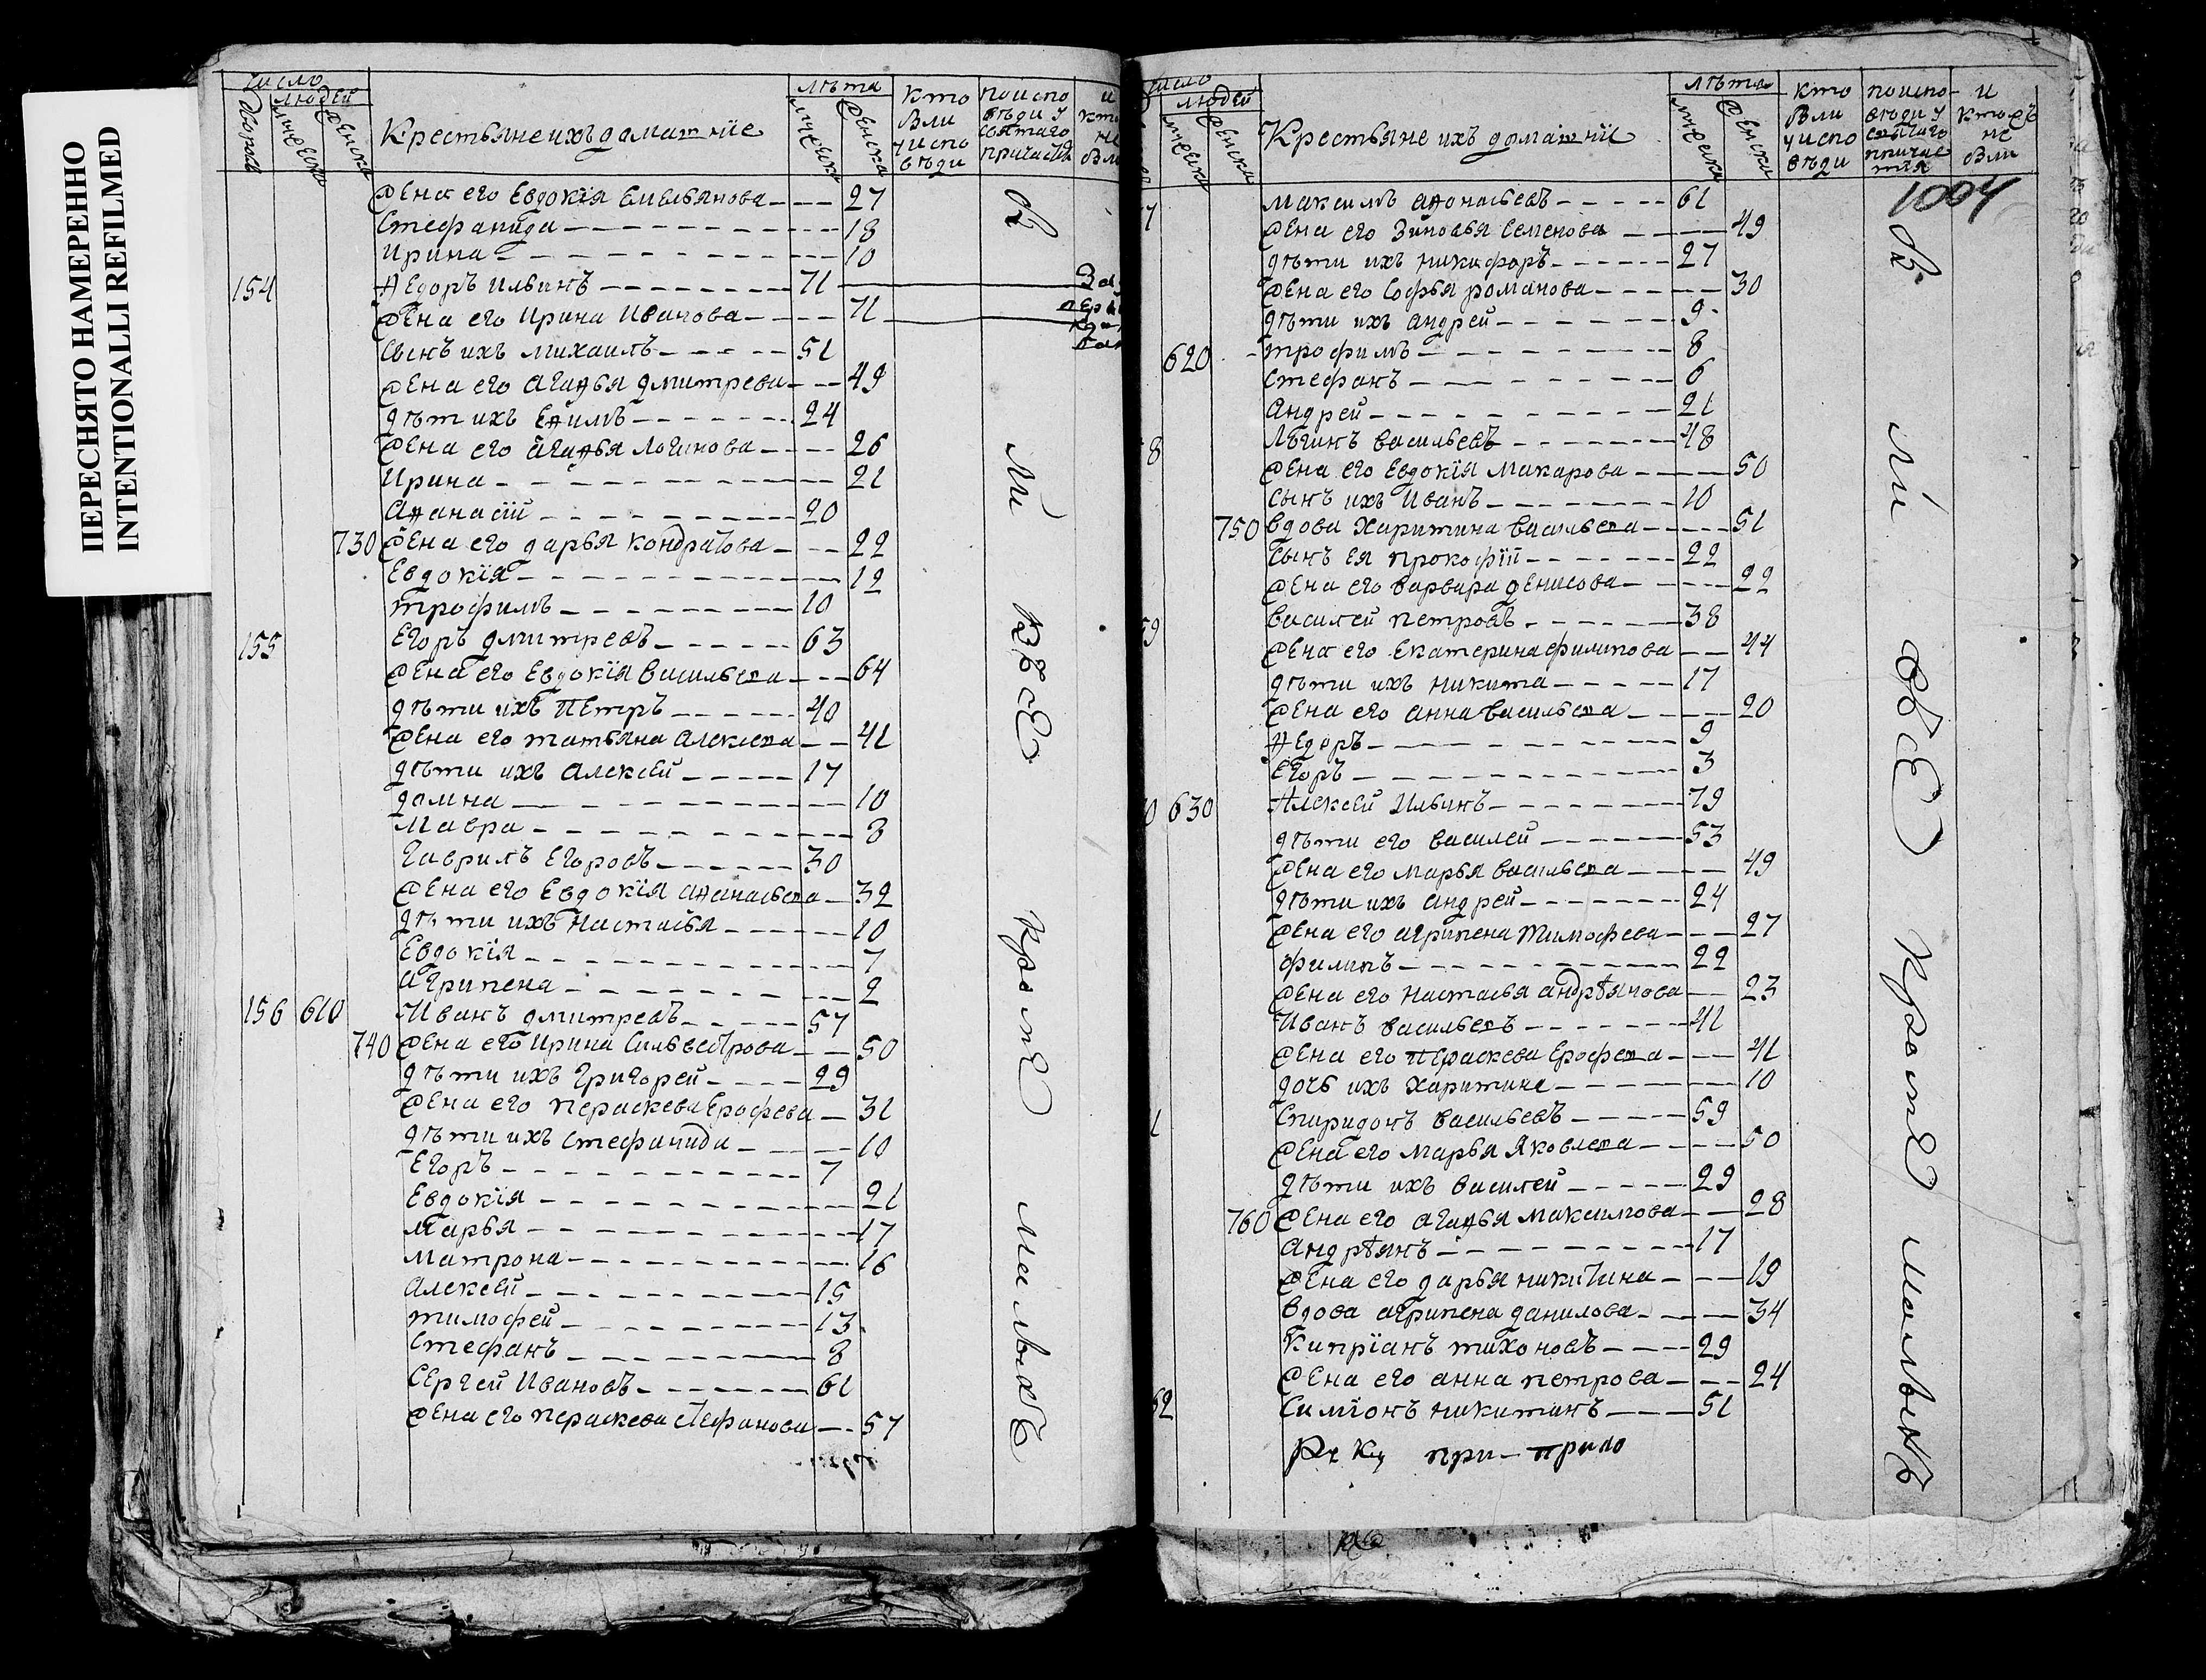 ПЕРЕСНЯТО НАМЕРЕННО
INTENTIONALLI REFILMED
число людей
Крестьяне ихъ домашнїе
лѣта
кто были у исповѣди
по исповѣди у святаго причастїя
жена его Евдокїя Емельянова 27
Стефанида 18
Ирина 10
154 Ѳедоръ Ильинъ 71
жена его Ирина Иванова 71
сынъ ихъ Михаилъ 51
жена его Агаѳья Дмитрева 49
дѣти ихъ Еѳимъ 24
жена его Агаѳья Логинова 26
Ирина 21
Аѳанасїй 20
730 жена его Дарья Кондратова 22
Евдокїя 12
Трофимъ 10
155 Егоръ Дмитревъ 63
жена его Евдокїя Васильева 64
дѣти ихъ Петръ 40
жена его Татьяна Алексева 41
дѣти ихъ Алексей 17
Домна 10
Мавра 8
Гаврилъ Егоровъ 30
жена его Евдокїя Аѳанасьева 32
дѣти ихъ Настасья 10
Евдокїя 7
Агрипена 2
156 610 Иванъ Дмитревъ 57
740 жена его Ирина Сильвестрова 50
дѣти ихъ Григорей 29
жена его Пераскева Ерофеева 31
дѣти ихъ Стефанида 10
Егоръ 7
Евдокїя 21
Марья 17
Матрона 16
Алексей 15
Тимофей 13
Стефанъ 8
Сергей Ивановъ 61
жена его Пераскева Стефанова 57
бы ли вьсе кроме малыхъ
число людей
Крестьяне ихъ домашнїе
лѣта
кто были у исповѣди
по исповѣди у святаго причастїя
и ктожъ не были
1004
7 Максимъ Аѳонасьевъ 61
жена его Зиновья Семенова 49
дѣти ихъ Никифоръ 27
жена его Софья Романова 30
дѣти ихъ Андрей 9
620 Трофимъ 8
Стефанъ 6
Андрей 21
8 Логинъ Васильевъ 48
жена его Евдокїя Макарова 50
сынъ ихъ Иванъ 10
750 вдова Харитина Васильева 51
сынъ ея Прокофїй 22
жена его Варвара Денисова 22
59 Василей Петровъ 38
жена его Екатерина Филипова 44
дѣти ихъ Никита 17
жена его Анна Васильева 20
Ѳедоръ 9
Егоръ 3
0 630 Алексей Ильинъ 79
дѣти его Василей 53
жена его Марья Васильева 49
дѣти ихъ Андрей 24
жена его Агрипена Тимофеева 27
Филипъ 22
жена его Настасья Андрѣянова 23
Иванъ Васильевъ 41
жена его Пераскева Ерофеева 41
дочь ихъ Харитина 10
1 Спиридонъ Васильевъ 59
жена его Марья Яковлева 50
дѣти ихъ Василей 29
760 жена его Агаѳья Максимова 28
Андрѣянъ 17
жена его Дарья Никитина 19
вдова Агрипена Данилова 34
Кипрїанъ Тихоновъ 29
жена его Анна Петрова 24
62 Симїонъ Никитинъ 51
бы ли вьсе кроме малыхъ